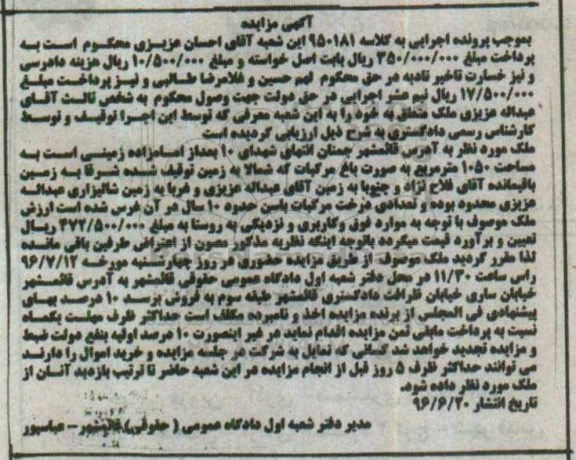 آگهی مزایده
بموجب پرونده اجرایی به کلاسه ۹۵۰۱۸۱ این شعبه آقای احسان عزیزی محکوم است به
پرداخت مبلغ ۳۵۰/۰۰۰/۰۰۰ ریال بابت اصل خواسته و مبلغ ۱۰/۵۰۰/۰۰۰ ریال هزینه دادرسی
و نیز خسارت تاخیر تادیه در حق محکوم لهم حسین و غلامرضا طالبی و نیز پرداخت مبلغ
۱۷/۵۰۰/۰۰۰ ریال نیم عشر اجرایی در حق دولت جهت وصول محکوم به شخص ثالث آقای
عبداله عزیزی ملک متعلق به خود را به این شعبه معرفی که توسط این اجرا توقیف و توسط
کارشناس رسمی دادگستری به شرح ذیل ارزیابی گردیده است
ملک مورد نظر به آدرس قائمشهر جمنان انتهای شهدای ۱۰ بعداز امامزاده زمینی است به
مساحت ۱۰۵۰ مترمربع به صورت باغ مرکبات که شمالا به زمین توقیف شده شرقا به زمین
باقیمانده آقای فلاح نژاد و جنوبا به زمین آقای عبداله عزیزی و غربا به زمین شالیزاری عبداله
عزیزی محدود بوده و تعدادی درخت مرکبات باسن حدود ۱۰ سال در آن غرس شده است ارزش
ملک موصوف با توجه به موارد فوق وکاربری و نزدیکی به روستا به مبلغ ۳۷۲/۵۰۰/۰۰۰ ریال
تعیین و برآورد قیمت میگردد باتوجه اینکه نظریه مذکور مصون از اعتراض طرفین باقی مانده
لذا مقرر گردید ملک موصوف از طریق مزایده حضوری در روز چهارشنبه مورخه ۹۶/۷/۱۲
راس ساعت ۱۱/۳۰ در محل دفتر شعبه اول دادگاه عمومی حقوقی قائمشهر به آدرس قائمشهر
خیابان ساری خیابان نظرافت دادگستری قائمشهر طبقه سوم به فروش برسد ۱۰ درصد بهای
پیشنهادی فی المجلس از برنده مزایده اخذ و نامبرده مکلف است حداکثر ظرف مهلت یکماه
نسبت به پرداخت مابقی ثمن مزایده اقدام نماید در غیر اینصورت ۱۰ درصد اولیه بنفع دولت ضبط
و مزایده تجدید خواهد شد کسانی که تمایل به شرکت در جلسه مزایده و خرید اموال را دارند
می توانند حداکثر ظرف ۵ روز قبل از انجام مزایده در این شعبه حاضر تا ترتیب بازدید آنان از
ملک مورد نظر داده شود.
تاریخ انتشار ۹۶/۶/۲۰
مدیر دفتر شعبه اول دادگاه عمومی (حقوقی) قائمشهر - عباسپور